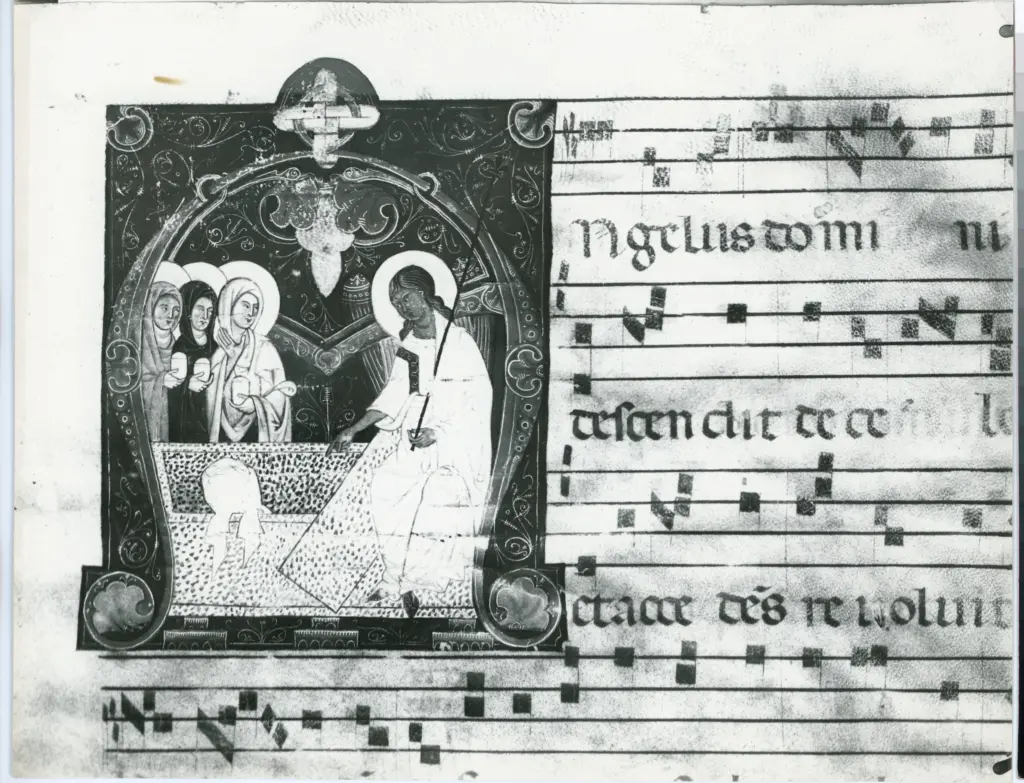 Ngelus domi ni
descendit de ce lo
et acce dēs re uoluit